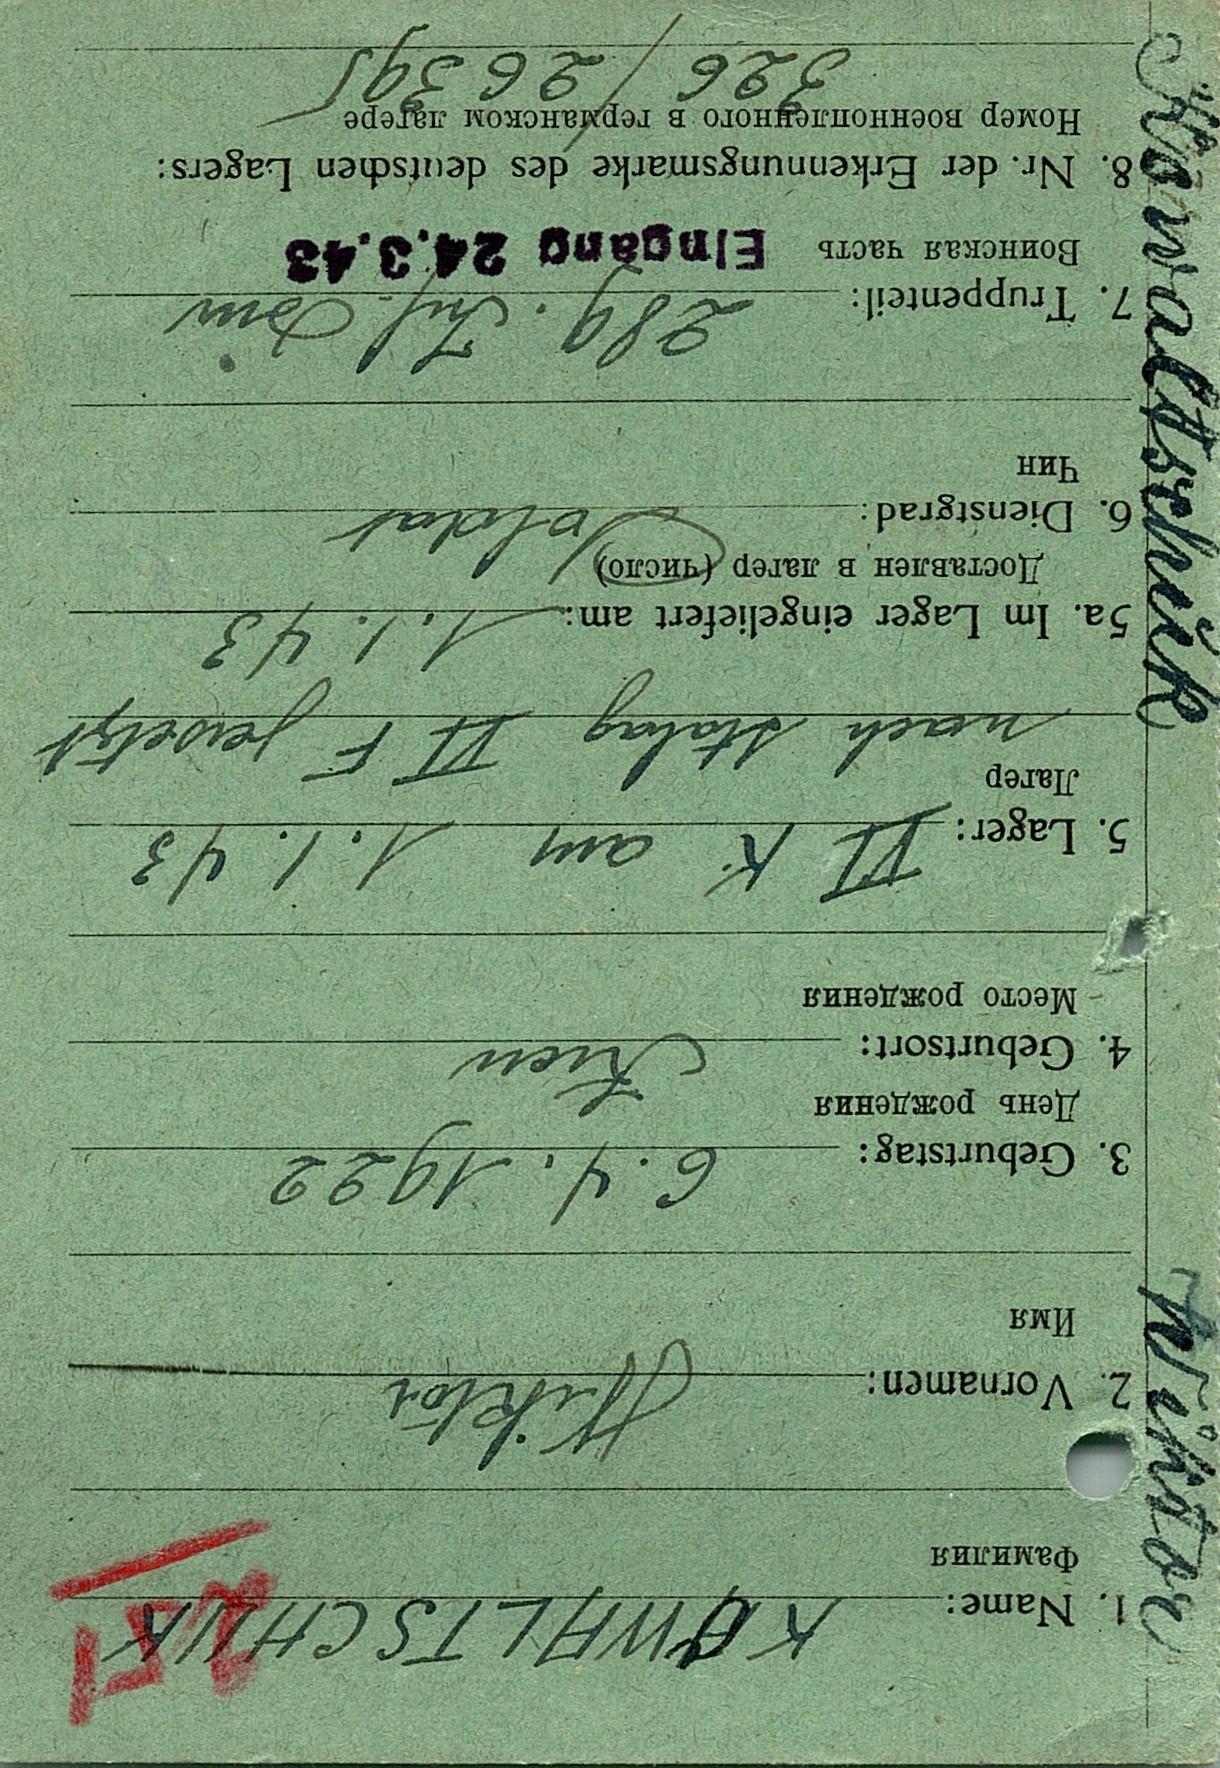 Kowaltschuk Wiktor
1. Name: KOWALTSCHUK
Фамилия
251
2. Vornamen: Wiktor
Имя
3. Geburtstag: 6. 4. 1922
День рождения
4. Geburtsort: Kiew
Место рождения
5. Lager: VI K am 1. 1. 43
Лагер
nach Stalag VI F
5a. Im Lager eingeliefert am: 1. 1. 43
Доставлен в лагер (число)
6. Dienstgrad: Soldat
Чин
7. Truppenteil: 289. Inf. Div
Воинская часть Eingang 24.3.43
8. Nr. der Erkennungsmarke des deutschen Lagers:
Номер военнопленного в германском лагере
326/26391